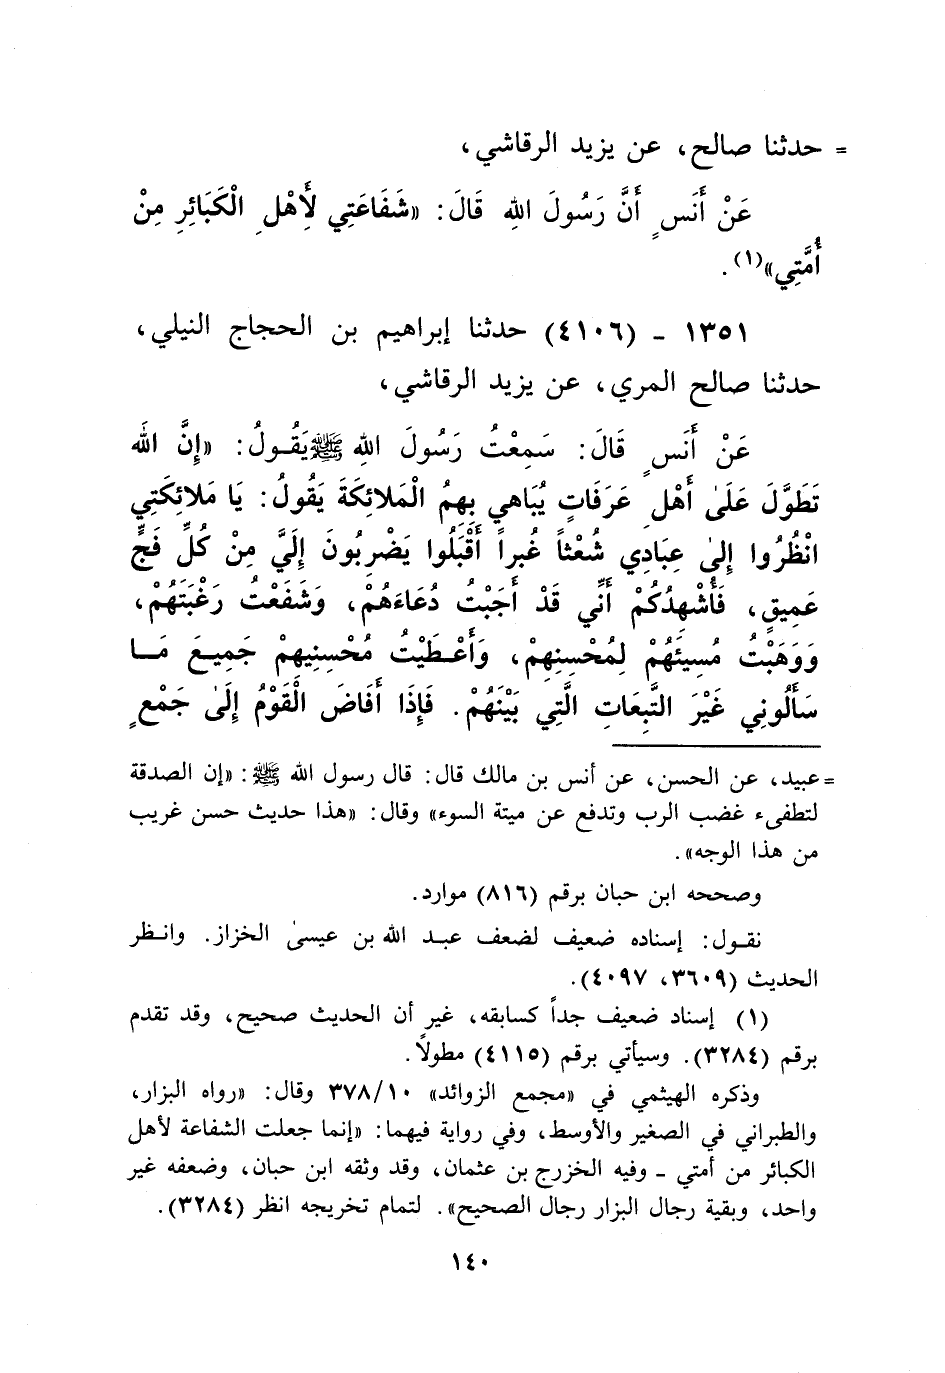 = حدثنا صالح، عن يزيد الرقاشي،
عَنْ أَنَسٍ أَنَّ رَسُولَ اللهِ قَالَ: «شَفَاعَتِي لأَهْلِ الْكَبَائِرِ مِنْ
أُمَّتِي»(١).
١٣٥١ - (٤١٠٦) حدثنا إبراهيم بن الحجاج النيلي،
حدثنا صالح المري، عن يزيد الرقاشي،
عَنْ أَنَسٍ قَالَ: سَمِعْتُ رَسُولَ اللهِ ﷺ يَقُولُ: «إِنَّ اللهَ
تَطَوَّلَ عَلَىٰ أَهْلِ عَرَفَاتٍ يُبَاهي بِهِمُ الْمَلائِكَةَ يَقُولُ: يَا مَلائِكَتِي
انْظُرُوا إِلىٰ عِبَادِي شُعْثاً غُبراً أَقْبَلُوا يَضْرِبُونَ إِلَيَّ مِنْ كُلِّ فَجٍّ
عَمِيقٍ، فَأُشْهِدُكُمْ أَنِّي قَدْ أَجَبْتُ دُعَاءَهُمْ، وَشَفَعْتُ رَغْبَتَهُمْ،
وَوَهَبْتُ مُسِيئَهُمْ لِمُحْسِنِهِمْ، وَأَعْطَيْتُ مُحْسِنِيهِمْ جَمِيعَ مَا
سَأَلُونِي غَيْرَ التَّبِعَاتِ الَّتِي بَيْنَهُمْ. فَإِذَا أَفَاضَ الْقَوْمُ إِلَىٰ جَمْعٍ
= عبيد، عن الحسن، عن أنس بن مالك قال: قال رسول الله ﷺ: «إن الصدقة
لتطفىء غضب الرب وتدفع عن ميتة السوء» وقال: «هذا حديث حسن غريب
من هذا الوجه».
وصححه ابن حبان برقم (٨١٦) موارد.
نقول: إسناده ضعيف لضعف عبد الله بن عيسىٰ الخزاز. وانظر
الحديث (٣٦٠٩، ٤٠٩٧).
(١) إسناد ضعيف جداً كسابقه، غير أن الحديث صحيح، وقد تقدم
برقم (٣٢٨٤). وسيأتي برقم (٤١١٥) مطولاً.
وذكره الهيثمي في «مجمع الزوائد» ٣٧٨/١٠ وقال: «رواه البزار،
والطبراني في الصغير والأوسط، وفي رواية فيهما: «إنما جعلت الشفاعة لأهل
الكبائر من أمتي - وفيه الخزرج بن عثمان، وقد وثقه ابن حبان، وضعفه غير
واحد، وبقية رجال البزار رجال الصحيح». لتمام تخريجه انظر (٣٢٨٤).
١٤٠